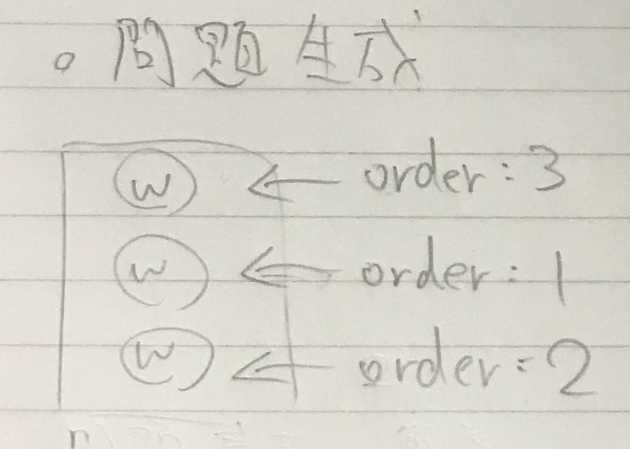 。問題生成
W ← order : 3
W ← order : 1
W ← order : 2